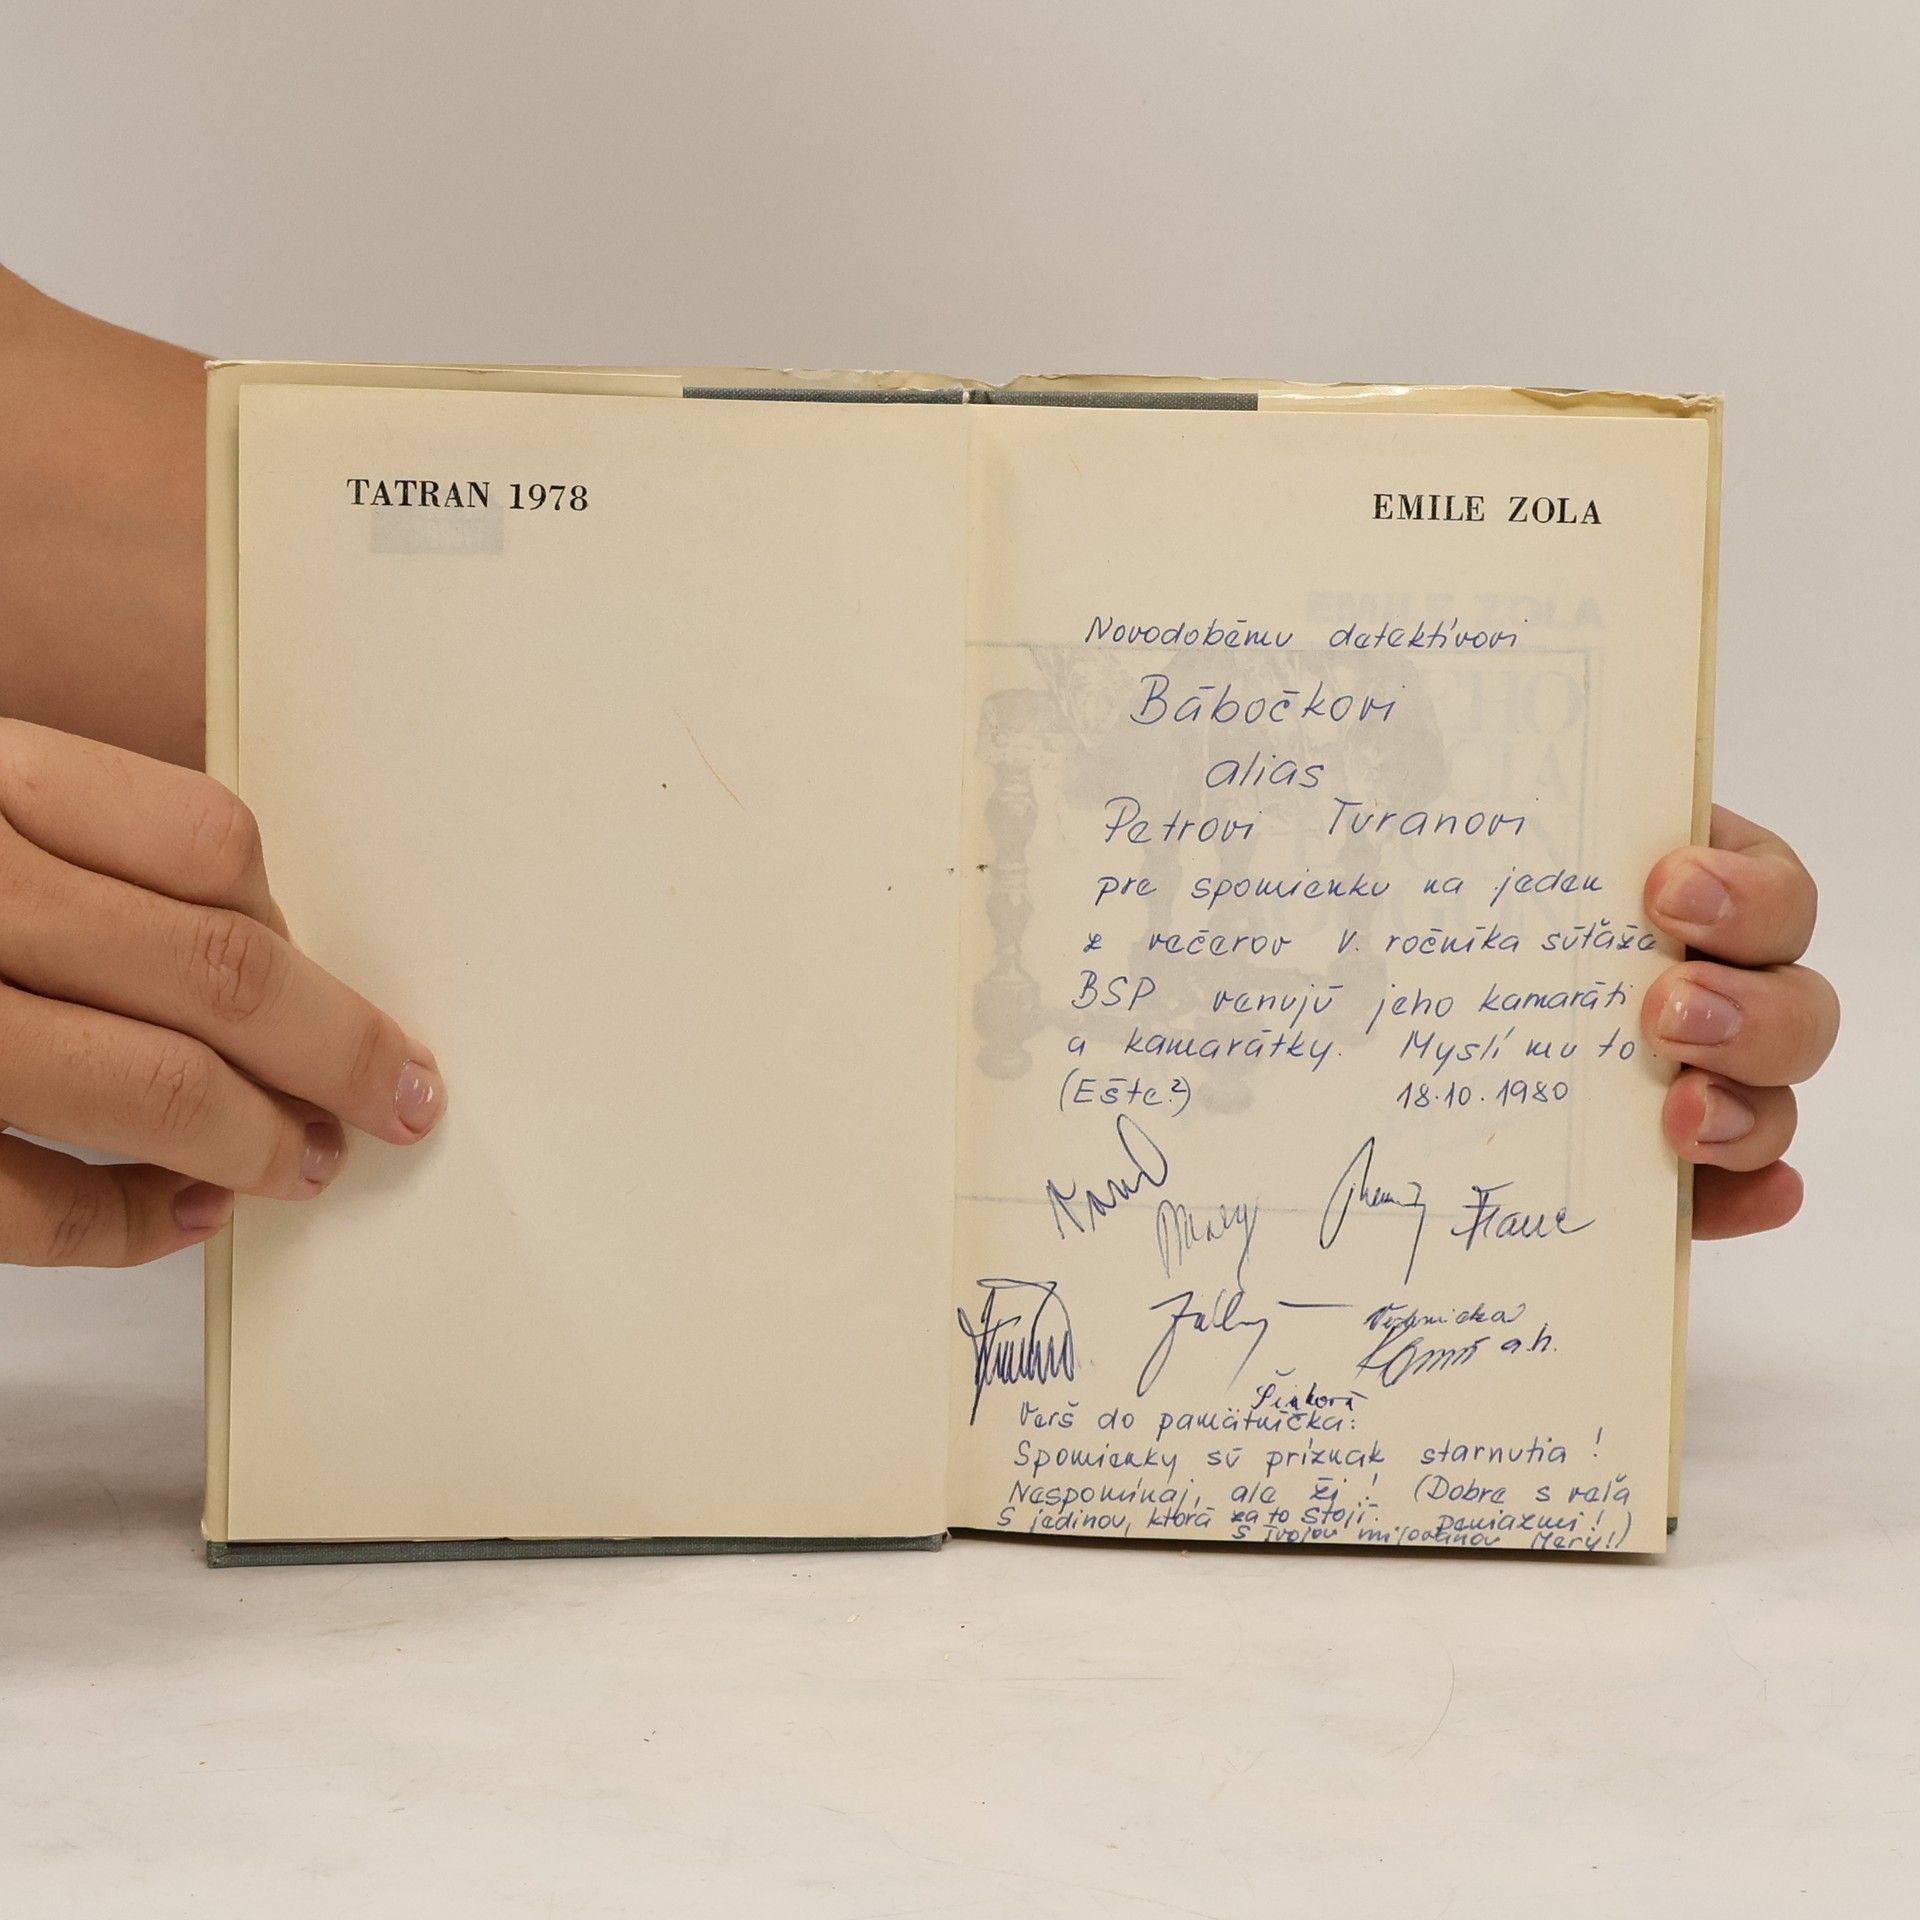 TATRAN 1978
EMILE ZOLA
Novodobému detektívovi
Bábočkovi
alias
Petrovi Turanovi
pre spomienku na jeden
z večerov V. ročníka súťaže
BSP venujú jeho kamaráti
a kamarátky. Myslí mu to.
(Ešte?) 18.10.1980
Mery
a.h.
Verš do pamätníčka:
Spomienky sú príznak starnutia!
Nespomínaj, ale ži! (Dobre s veľa
S jedinou, ktorá za to stojí. peniazmi!)
S tvojou milovanou Mery!)